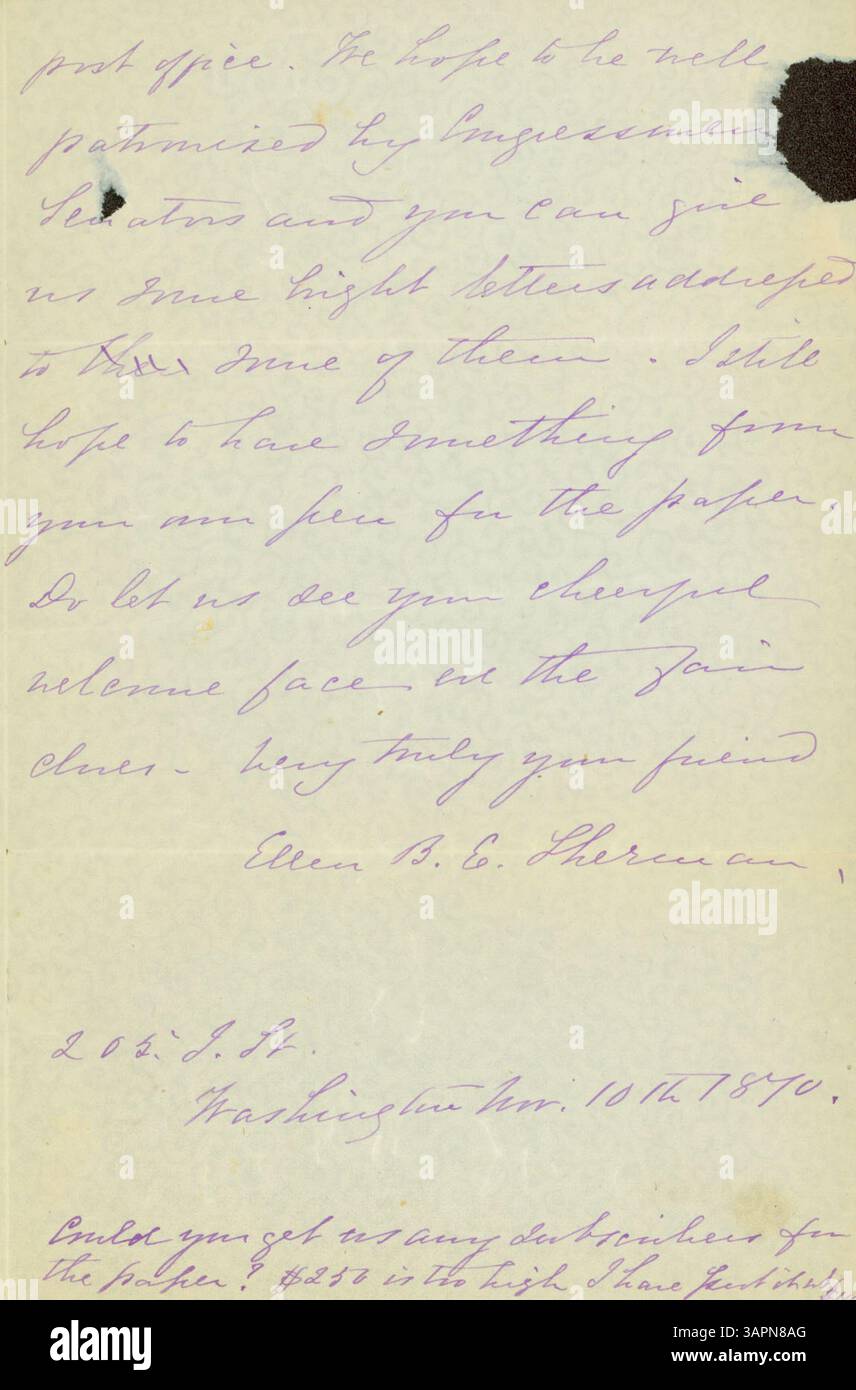 post office. We hope to be well
patronised by Congressmen
Senators and you can give
us some bright letters addressed
to some of them. I still
hope to have something from
your own pen for the paper.
Do let us see your cheerful
welcome face ere the Fair
closes - Very truly your friend
Ellen B. E. Sherman,
205. I. St.
Washington Nov. 10th 1870.
Could you get us any subscribers for
the paper? $250 is too high I have put it
alamy
Image ID: 3APN8AG
www.alamy.com